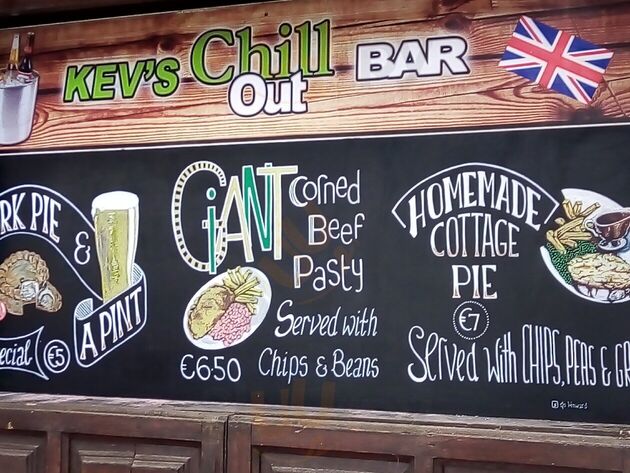 KEV'S Chill Out BAR
RK PIE
&
A PINT
ecial €5
GiANT Corned
Beef
Pasty
Served with
€6.50 Chips & Beans
HOMEMADE
COTTAGE
PIE
€7
Served With CHIPS, PEAS & GR